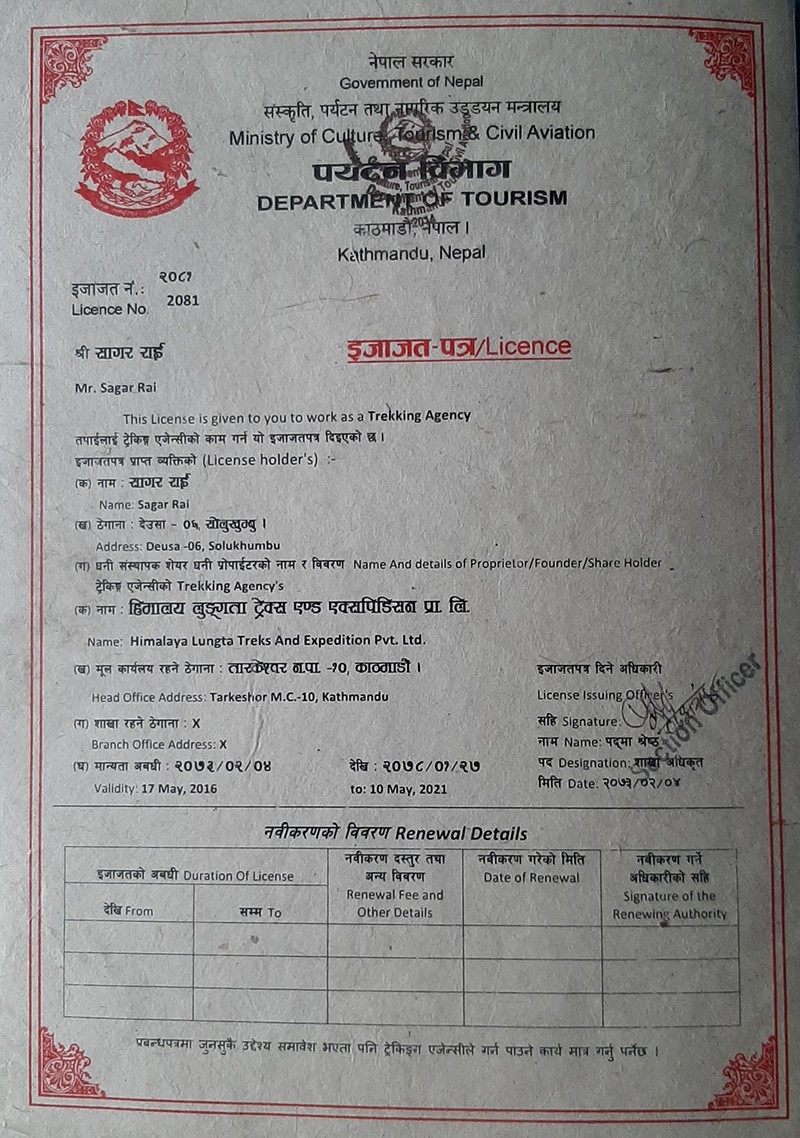 नेपाल सरकार
Government of Nepal
संस्कृति, पर्यटन तथा नागरिक उड्डयन मन्त्रालय
Ministry of Culture, Tourism & Civil Aviation
पर्यटन विभाग
DEPARTMENT OF TOURISM
काठमाडौं, नेपाल ।
Kathmandu, Nepal
इजाजत नं.: २०८१
Licence No. 2081
श्री सागर राई
इजाजत-पत्र/Licence
Mr. Sagar Rai
This License is given to you to work as a Trekking Agency
तपाईलाई ट्रेकिङ्ग एजेन्सीको काम गर्न यो इजाजतपत्र दिइएको छ ।
इजाजतपत्र प्राप्त व्यक्तिको (License holder's) :-
(क) नाम : सागर राई
Name: Sagar Rai
(ख) ठेगाना : देउसा - ०६, सोलुखुम्बु ।
Address: Deusa -06, Solukhumbu
(ग) धनी संस्थापक शेयर धनी प्रोपाईटरको नाम र विवरण Name And details of Proprietor/Founder/Share Holder
ट्रेकिङ्ग एजेन्सीको Trekking Agency's
(क) नाम : हिमालय लुङ्गता ट्रेक्स एण्ड एक्सपिडिसन प्रा. लि.
Name: Himalaya Lungta Treks And Expedition Pvt. Ltd.
(ख) मूल कार्यलय रहने ठेगाना : तारकेश्वर न.पा. -१०, काठमाडौं ।
Head Office Address: Tarkeshor M.C.-10, Kathmandu
(ग) शाखा रहने ठेगाना : X
Branch Office Address: X
(घ) मान्यता अबधी : २०७३/०२/०४ देखि : २०७८/०१/२७
Validity: 17 May, 2016 to: 10 May, 2021
इजाजतपत्र दिने अधिकारी
License Issuing Officer's
सहि Signature:
नाम Name: पद्मा श्रेष्ठ
पद Designation: शाखा अधिकृत
मिति Date: २०७३/०२/०४
Section Officer
नवीकरणको विवरण Renewal Details
इजाजतको अबधी Duration Of License
देखि From
सम्म To
नवीकरण दस्तुर तथा
अन्य विवरण
Renewal Fee and
Other Details
नवीकरण गरेको मिति
Date of Renewal
नवीकरण गर्ने
अधिकारीको सहि
Signature of the
Renewing Authority
प्रबन्धपत्रमा जुनसुकै उद्देश्य समावेश भएता पनि ट्रेकिङ्ग एजेन्सीले गर्न पाउने कार्य मात्र गर्नु पर्नेछ ।